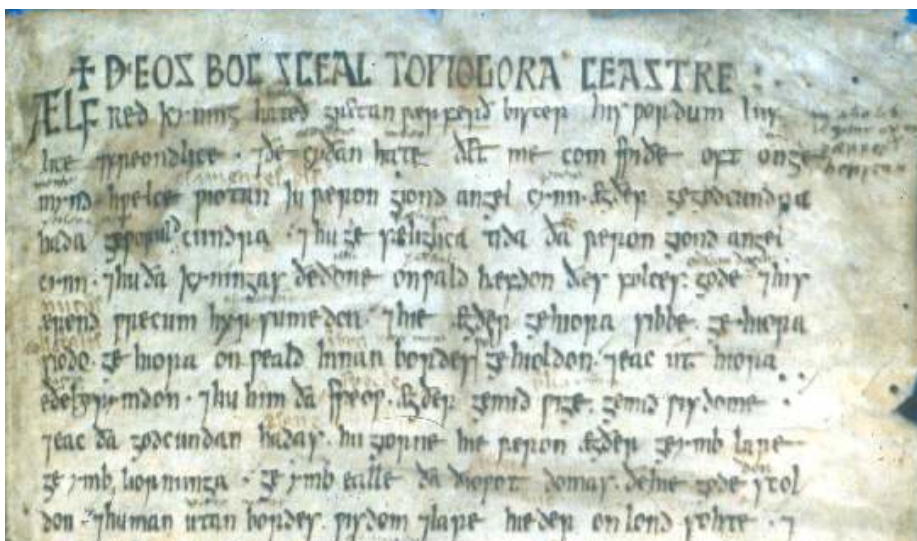 ✝ ÐEOS BOC SCEAL TO ǷIOGORA CEASTRE
ÆLFred kyning hateð gretan ƿærferð biscep his ƿordum luf
lice ⁊ freondlice · ⁊ ðe cyðan hate ðæt me com on ge
mynd · hƿelce ƿiotan iu ƿæron giond angel cynn · ægðer ge godcundra
hada ge ƿoruldcundra · ⁊ hu gesæliglica tida ða ƿæron giond angel
cynn · ⁊ hu ða kyningas ðe ðone onƿald hæfdon ðæs folces · gode ⁊ his
ærendƿrecum hyrsumedon · ⁊ hie ægðer ge hiora sibbe · ge hiora
siodo · ge hiora onƿeald innan bordes gehioldon · ⁊ eac ut hiora
eðel rymdon · ⁊ hu him ða speoƿ · ægðer ge mid ƿige · ge mid ƿisdome
⁊ eac ða godcundan hadas · hu giorne hie ƿæron ægðer ge ymb lare
ge ymb liornunga · ge ymb ealle ða ðioƿotdomas · ðe hie gode scol
don · ⁊ hu man utan bordes · ƿisdom ⁊ lare hieder on lond sohte · ⁊